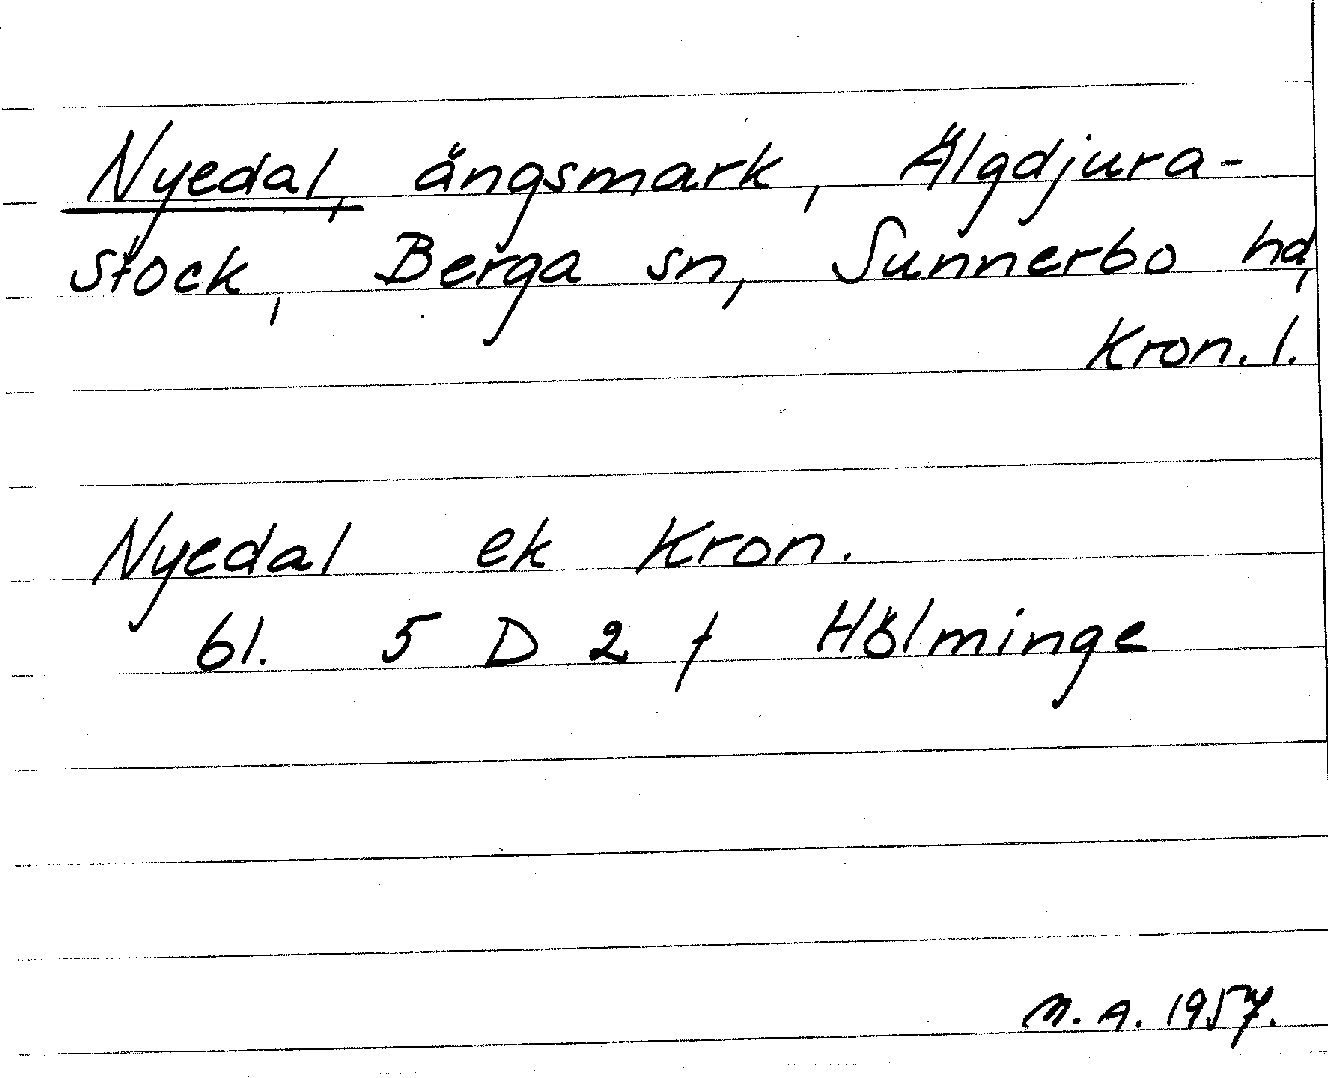 Nyedal, ängsmark, Älgdjura-
stock, Berga sn, Sunnerbo hd,
Kron. l.
Nyedal ek Kron.
bl. 5 D 2 f Hölminge
M. A. 1957.